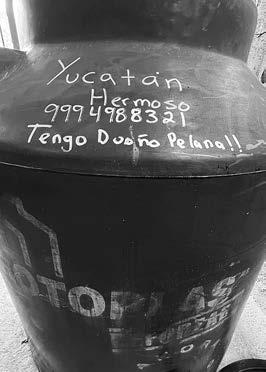 Yucatán
Hermoso
9994988321
Tengo Dueño Pelana!!
OTOPLAS